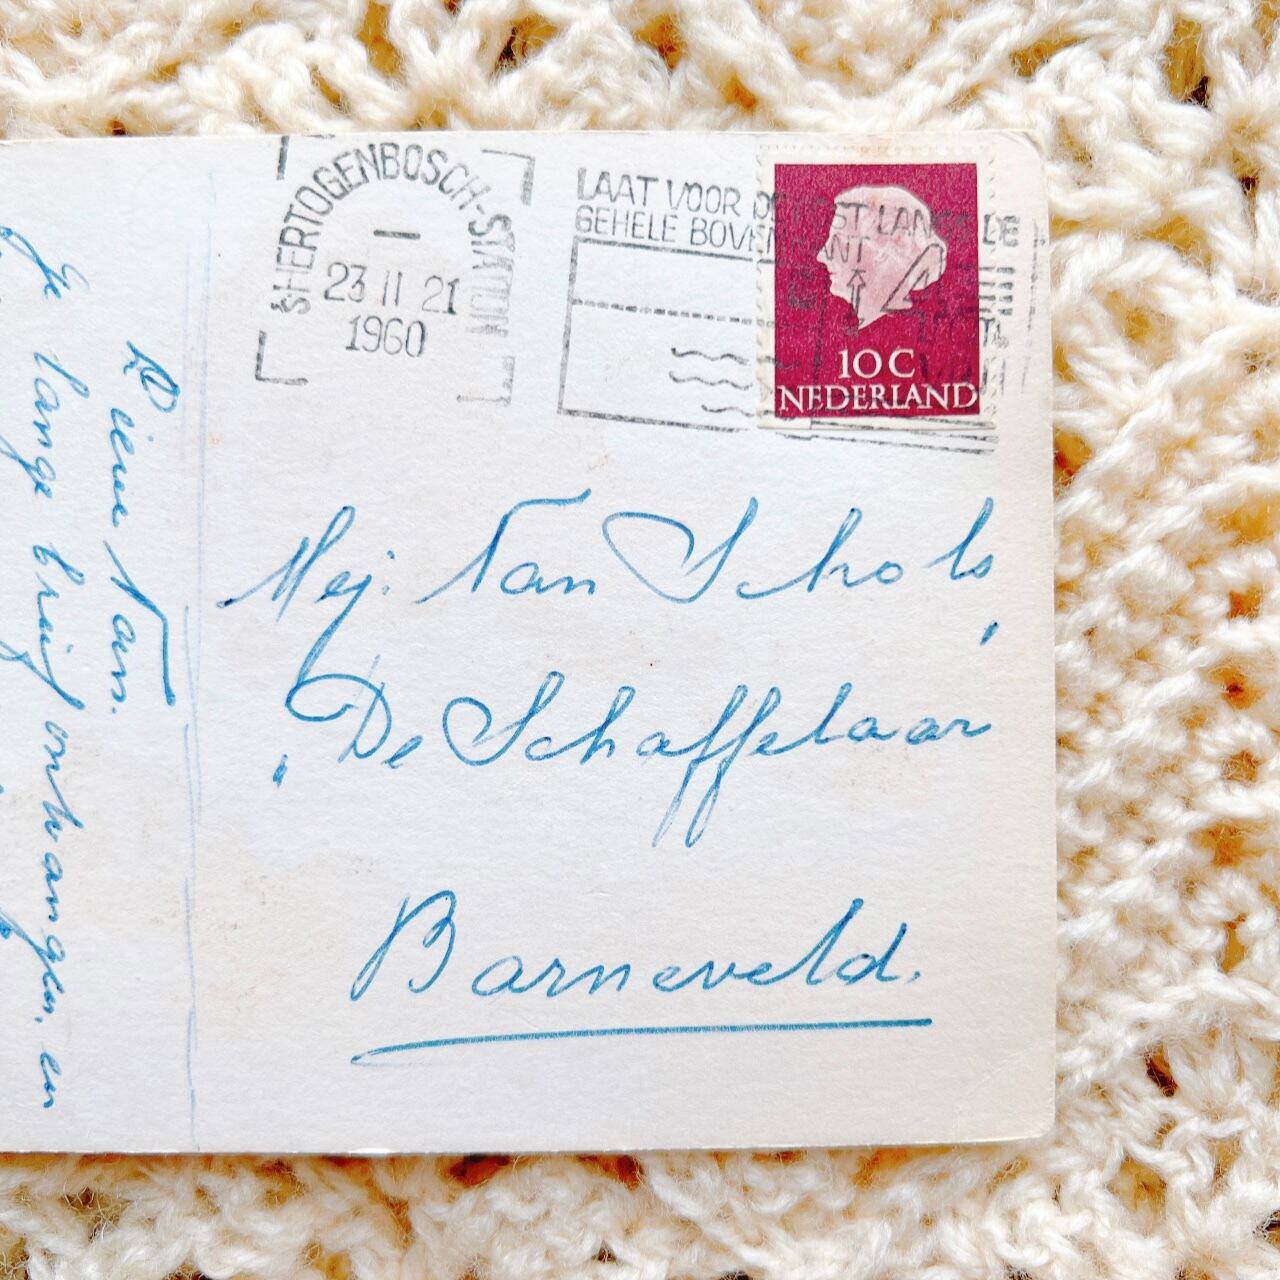 'S HERTOGENBOSCH-STATION
23 II 21
1960
LAAT VOOR DE POST LANGS DE
GEHELE BOVENKANT
10 C
NEDERLAND
Mej. Nan Schols
"De Schaffelaar"
Barneveld.
Lieve Nans.
Je lange brief ontvangen. en